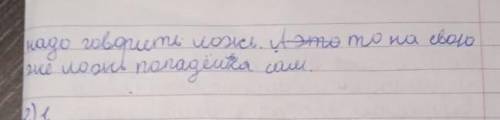 надо говорить ложь. А это то на свою
же ложь попадёшся сам.
2) 1